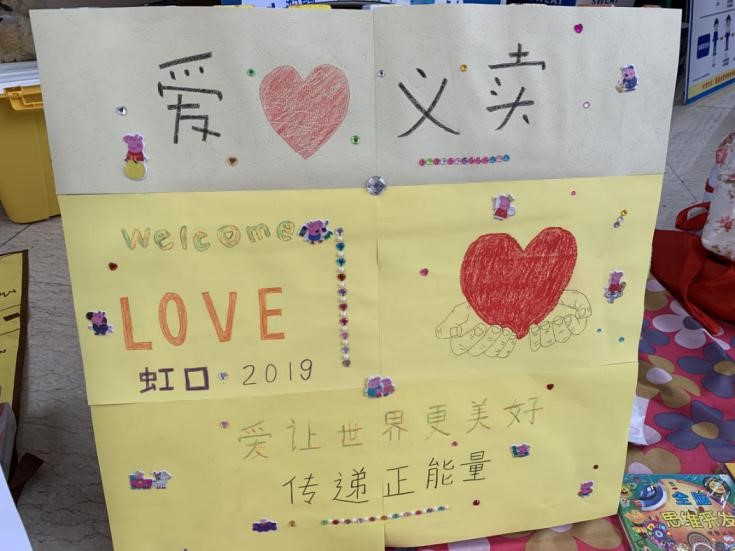 爱心义卖
welcome
LOVE
虹口 2019
爱让世界更美好
传递正能量
全脑
思维开发